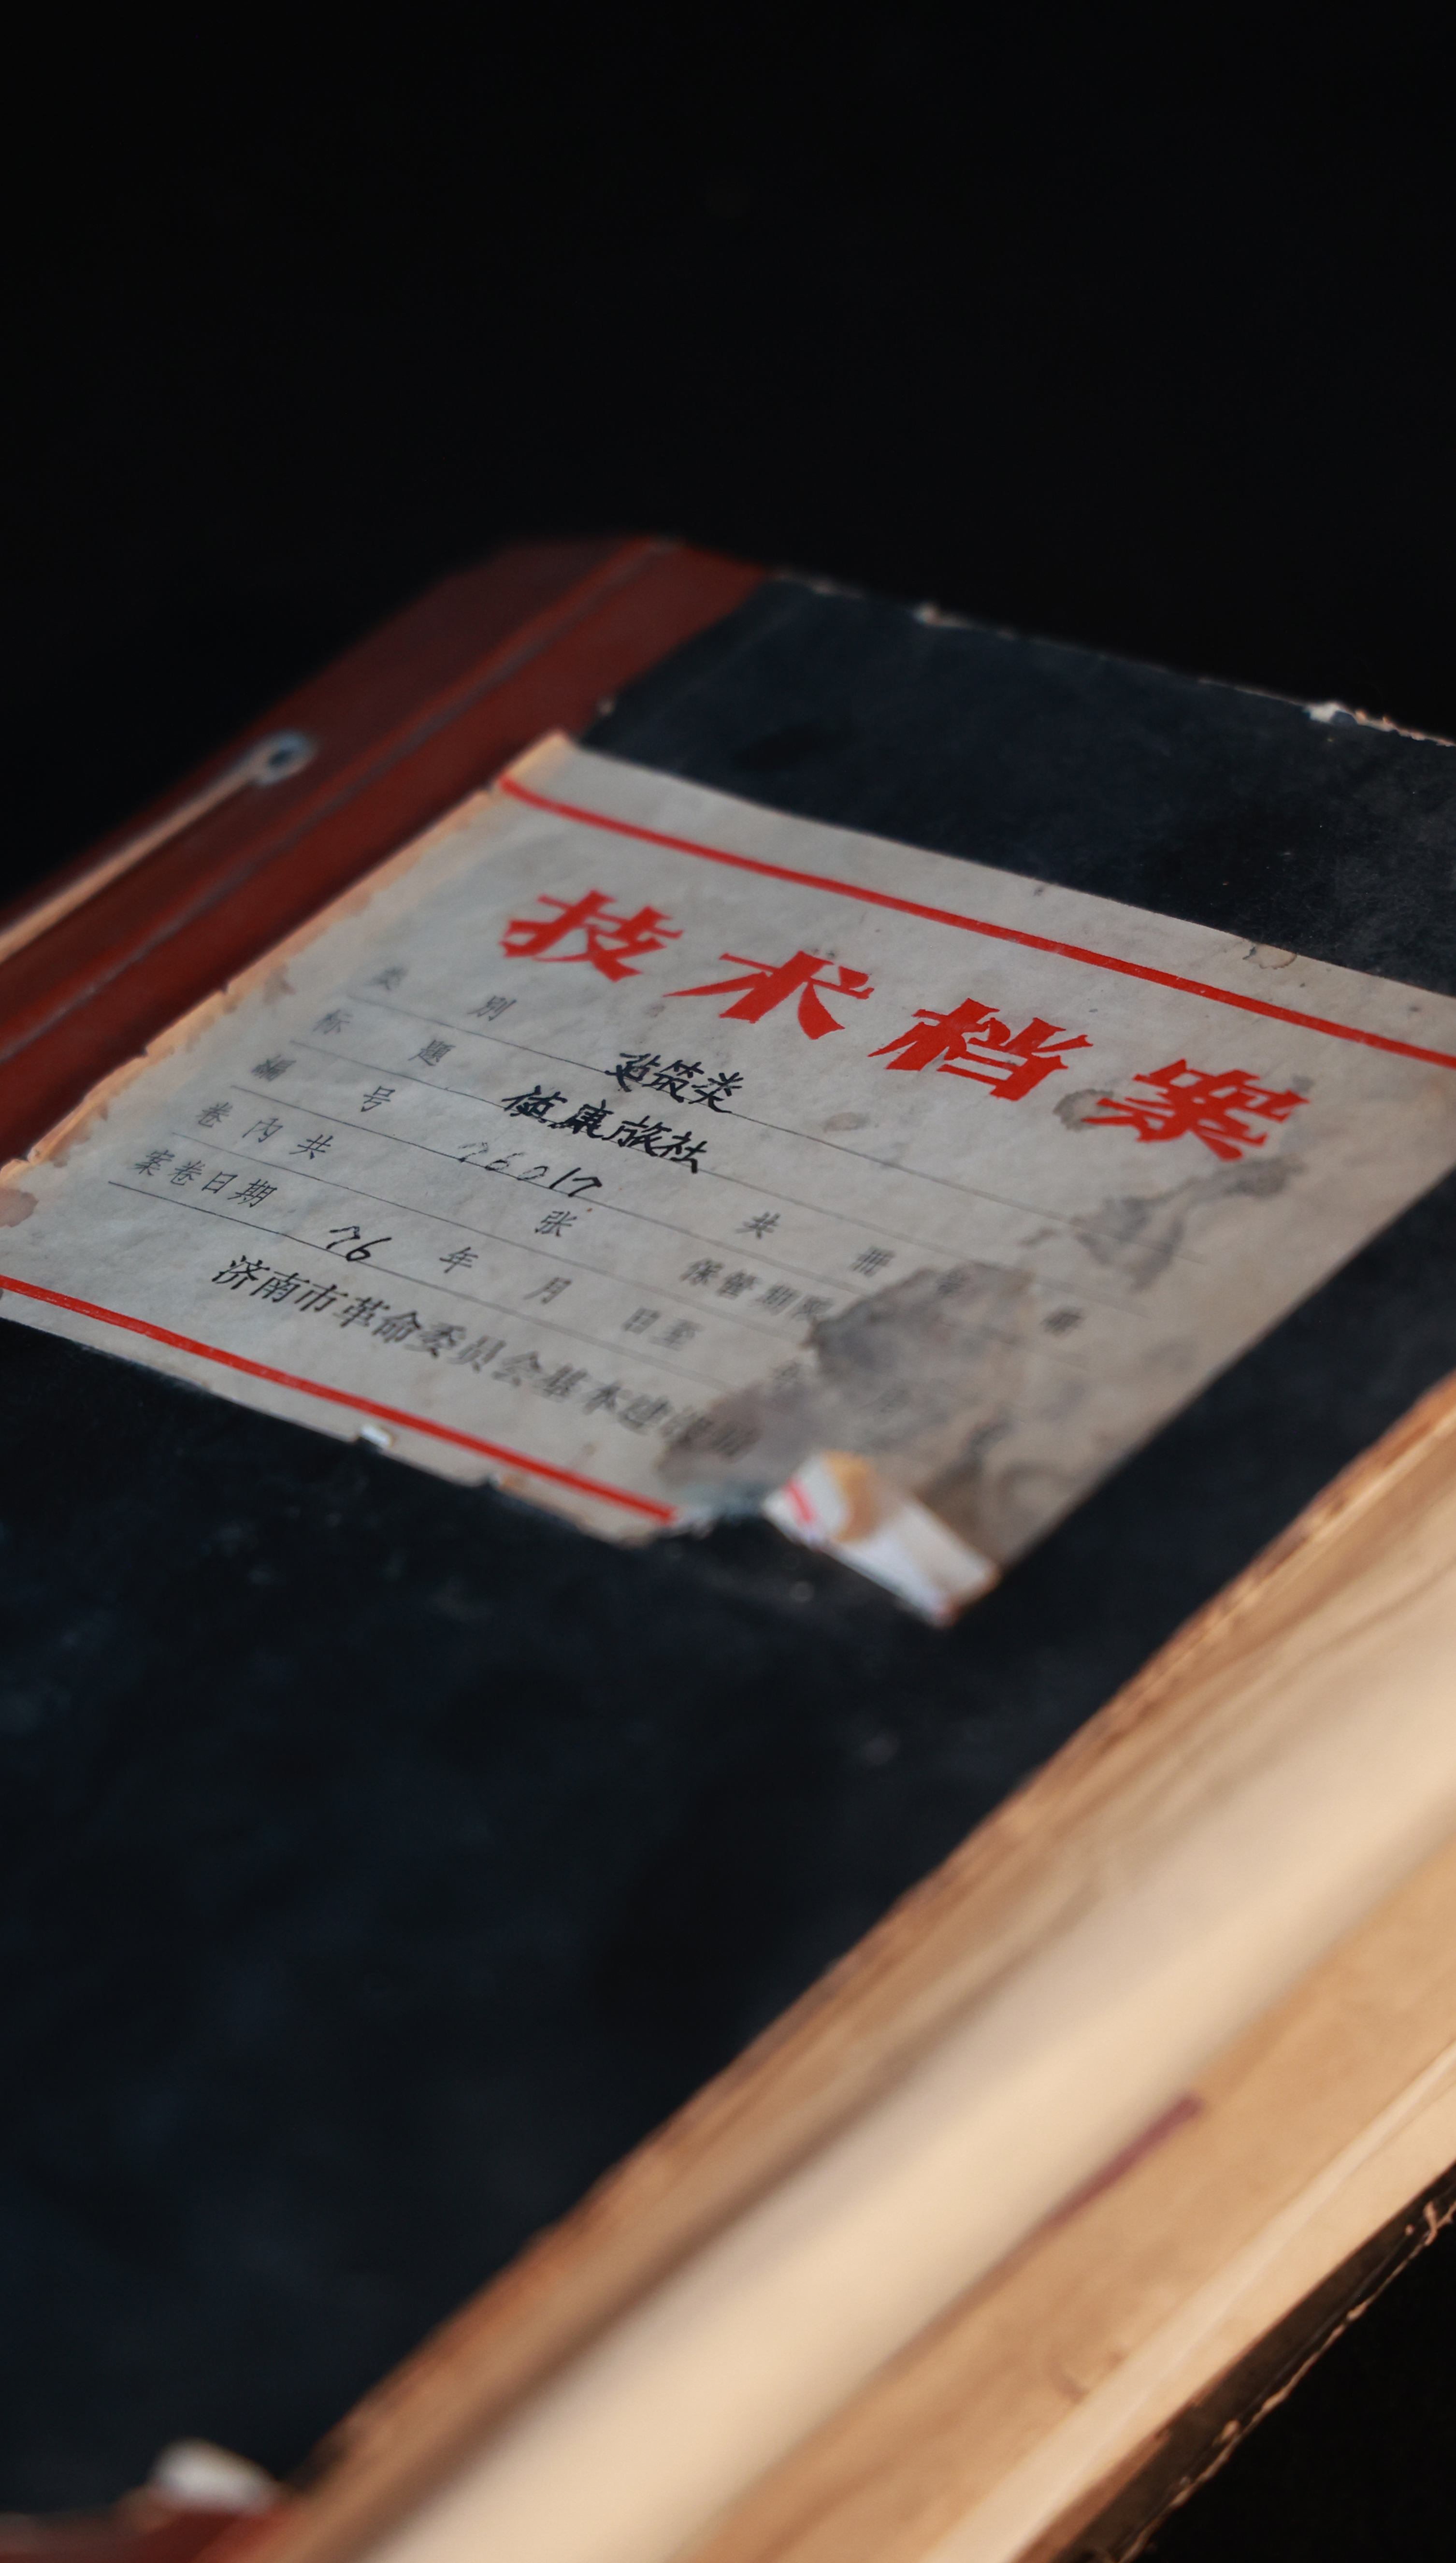 技术档案
类别 建筑类
标题 健康旅社
编号 26017
卷内共 张 共 册 第 册
案卷日期 76 年 月 日至 年 月
保管期限
济南市革命委员会基本建设局